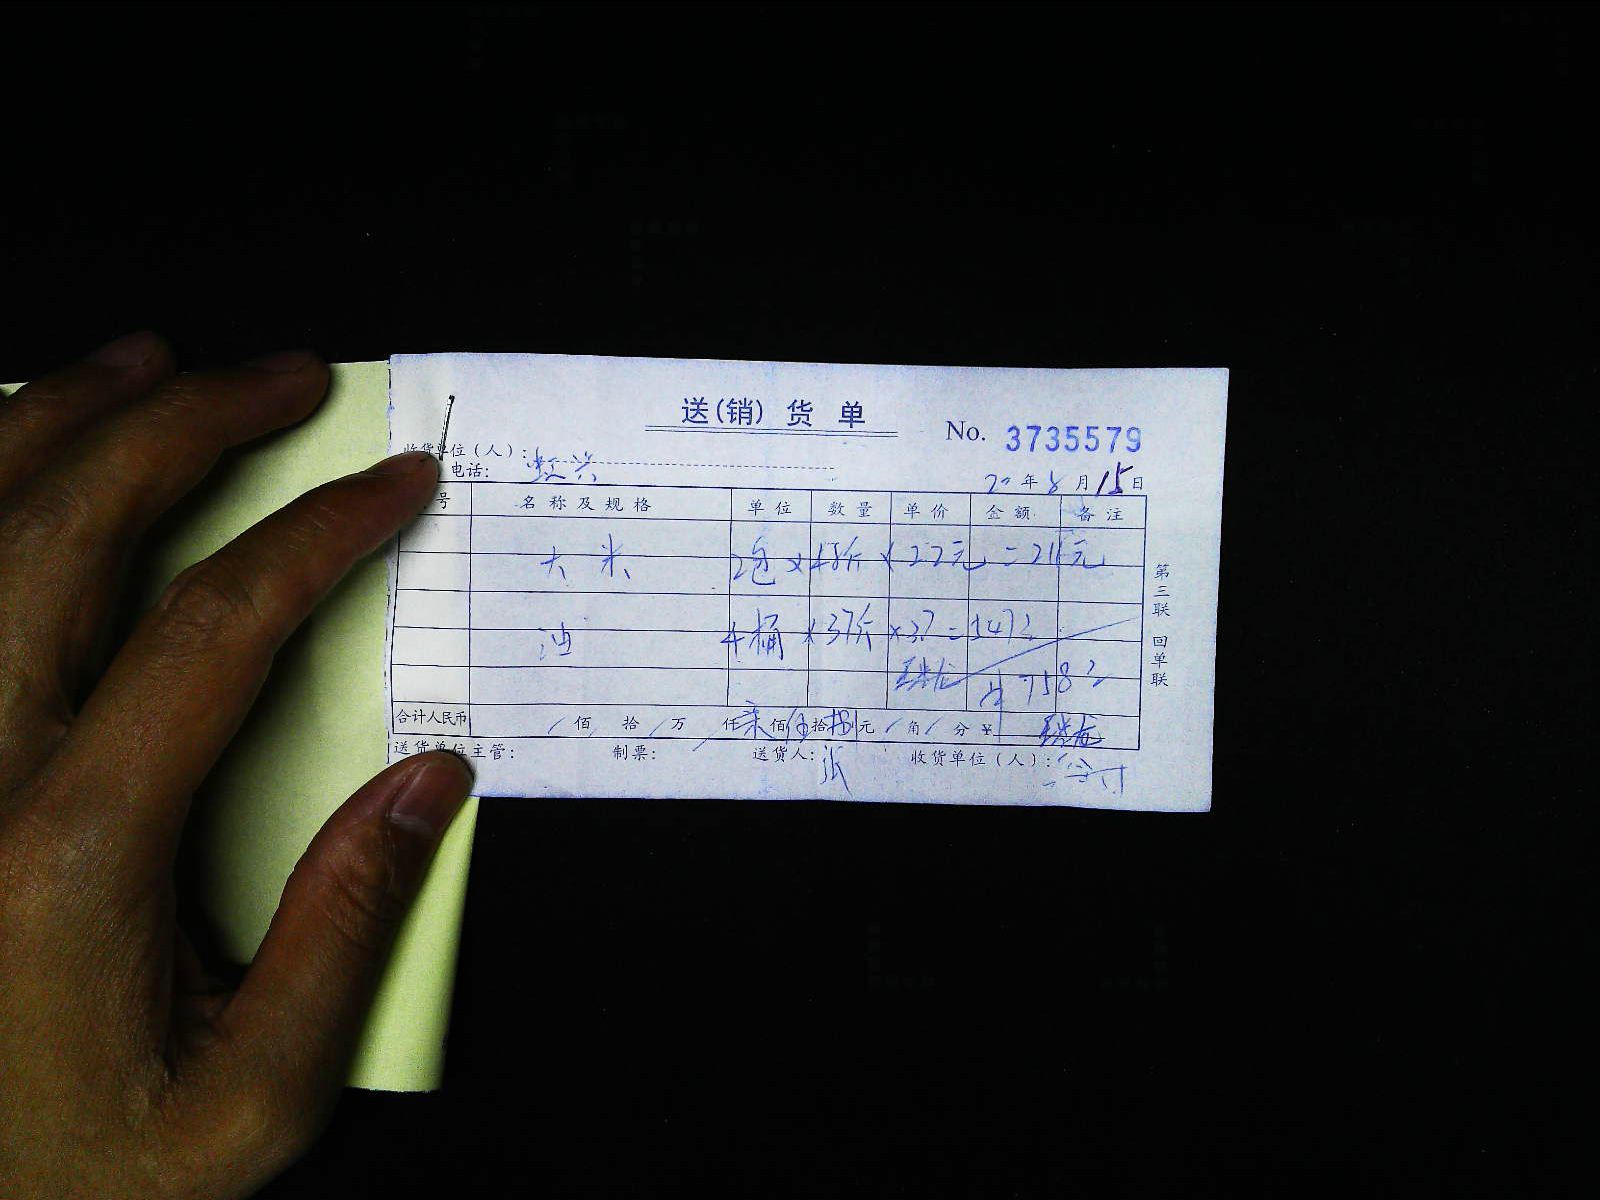 送(销)货单
No. 3735579
收货单位(人):
电话:
20年8月15日
号 名称及规格 单位 数量 单价 金额 备注
大米 2包 × 48斤 × 2.2元 = 211元
油 4桶 × 37斤 × 3.7 = 547元
758元
合计人民币 / 佰 拾 / 万 仟 柒 佰 伍 拾 捌 元 / 角 / 分 ¥
送货单位主管: 制票: 送货人: 张 收货单位(人):
第三联 回单联